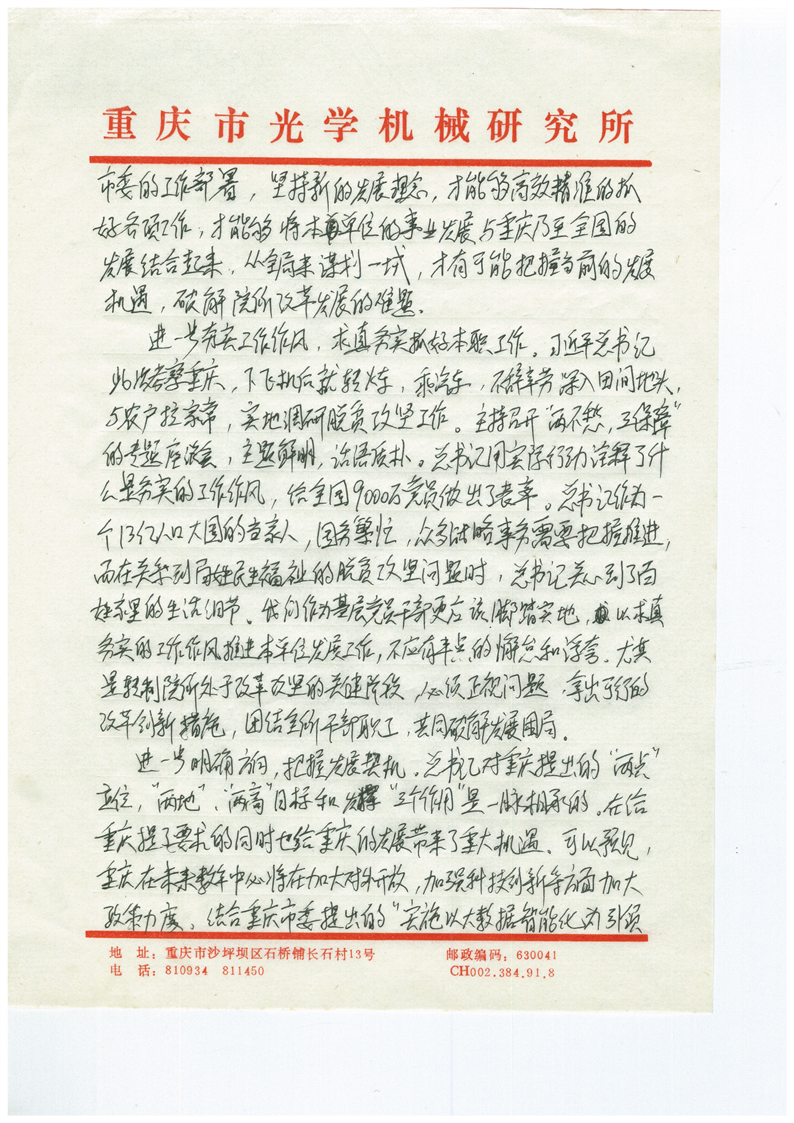 重庆市光学机械研究所
市委的工作部署，坚持新的发展理念，才能够高效精准的抓
好各项工作，才能够将本单位的事业发展与重庆乃至全国的
发展结合起来，从全局来谋划一域，才有可能把握当前的发展
机遇，破解院所改革发展的难题。
进一步夯实工作作风，求真务实抓好本职工作。习近平总书记
此次考察重庆，下飞机后就转火车，乘汽车，不辞辛劳深入田间地头，
与农户拉家常，实地调研脱贫攻坚工作。主持召开“两不愁，三保障”
的专题座谈会，主题鲜明，话语质朴。总书记用实际行动诠释了什
么是务实的工作作风，给全国9000万党员做出了表率。总书记作为一
个13亿人口大国的当家人，国务繁忙，众多战略事务需要把握推进，
而在关系到民生福祉的脱贫攻坚问题时，总书记关心到了百
姓家里的生活细节。我们作为基层党员干部更应该脚踏实地，以求真
务实的工作作风推进本单位发展工作，不应有半点的懈怠和浮夸。尤其
是转制院所处于改革攻坚的关键阶段，必须正视问题，拿出可行的
改革创新措施，团结全所干部职工，共同破解发展困局。
进一步明确方向，把握发展契机。总书记对重庆提出的“两点”
定位，“两地”、“两高”目标和发挥“三个作用”是一脉相承的。在给
重庆提了要求的同时也给重庆的发展带来了重大机遇。可以预见，
重庆在未来数年中必将在加大对外开放，加强科技创新等方面加大
政策力度。结合重庆市委提出的“实施以大数据智能化为引领
地　址：重庆市沙坪坝区石桥铺长石村13号　邮政编码：630041
电　话：810934　811450　CH002,384.91.8